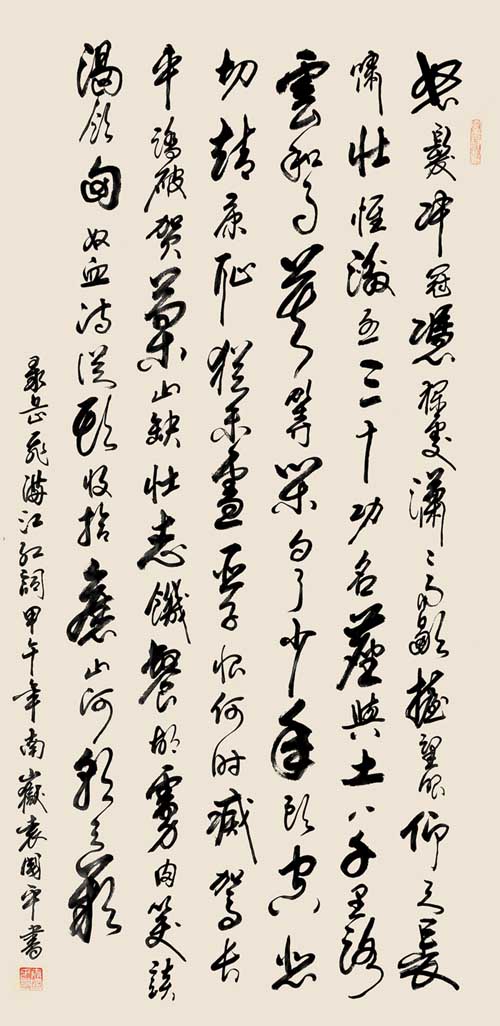 怒髮冲冠憑欄處瀟〻雨歇擡望眼仰天長
嘯壯懷激烈三十功名塵與土八千里路
雲和月莫等閑白了少年頭空悲
切靖康恥猶未雪臣子恨何時滅駕長
車踏破賀蘭山缺壯志饑餐胡虜肉笑談
渴飲匈奴血待從頭收拾舊山河朝天闕
录岳飛滿江紅詞甲午年南嶽袁國平書